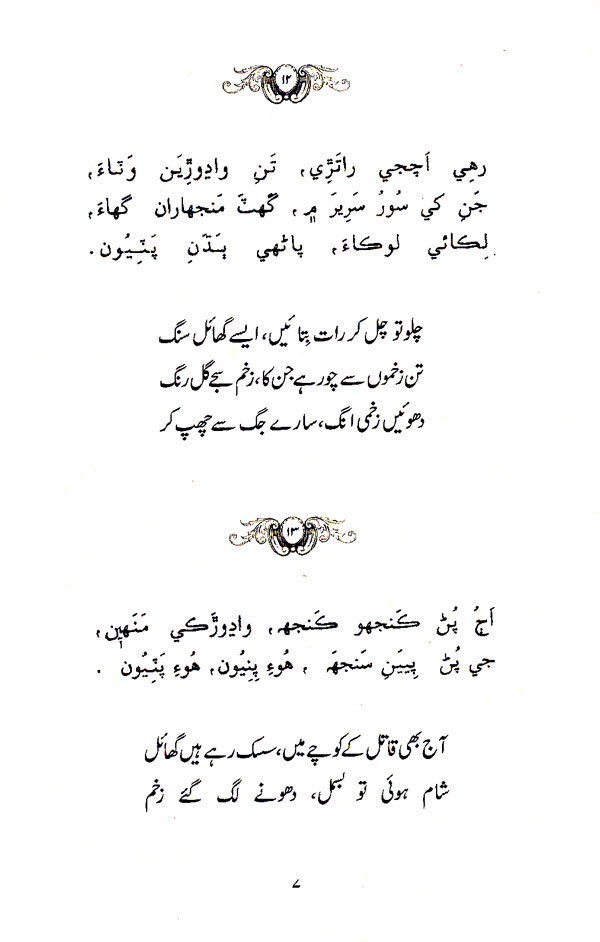 ۱۲
رهِي اَچجي راتَڙِي، تَنِ واڍوڙِيَن وَٽاءَ،
جَنِ کي سُورُ سَرِيرَ ۾، گَهٽَ مَنجهاران گهاءَ،
لِڪائي لوڪاءَ، پاڻهي ٻَڌَنِ پَٽِيُون.
چلو تو چل کر رات بِتائیں، ایسے گھائل سنگ
تن زخموں سے چور ہے جن کا، زخم سجے گل رنگ
دھوئیں زخمی انگ، سارے جگ سے چھپ کر
۱۳
اَڄُ پُڻ ڪَنجهو ڪَنجهہ، واڍوڙَڪي مَنَهين،
جي پُڻ پِييَنِ سَنجهہَ، هُوءِ پِنِيُون، هُوءِ پَٽِيُون.
آج بھی قاتل کے کوچے میں، سسک رہے ہیں گھائل
شام ہوئی تو بسمل، دھونے لگ گئے زخم
۷